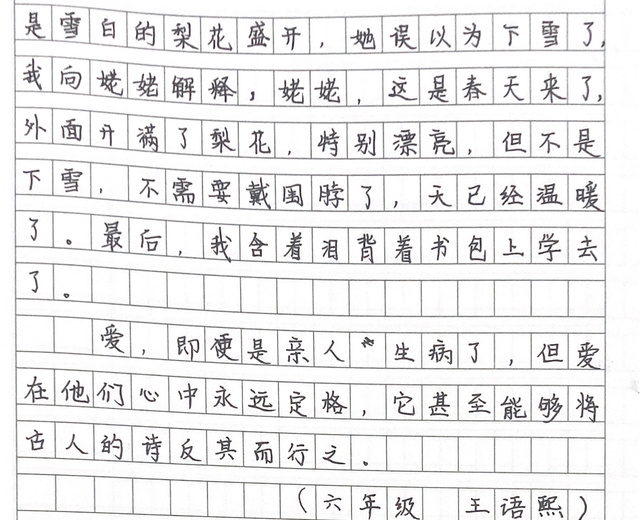 是雪白的梨花盛开，她误以为下雪了，
我向姥姥解释，姥姥，这是春天来了，
外面开满了梨花，特别漂亮，但不是
下雪，不需要戴围脖了，天已经温暖
了。最后，我含着泪背着书包上学去
了。
爱，即便是亲人生病了，但爱
在他们心中永远定格，它甚至能够将
古人的诗反其而行之。
（六年级 王语熙）